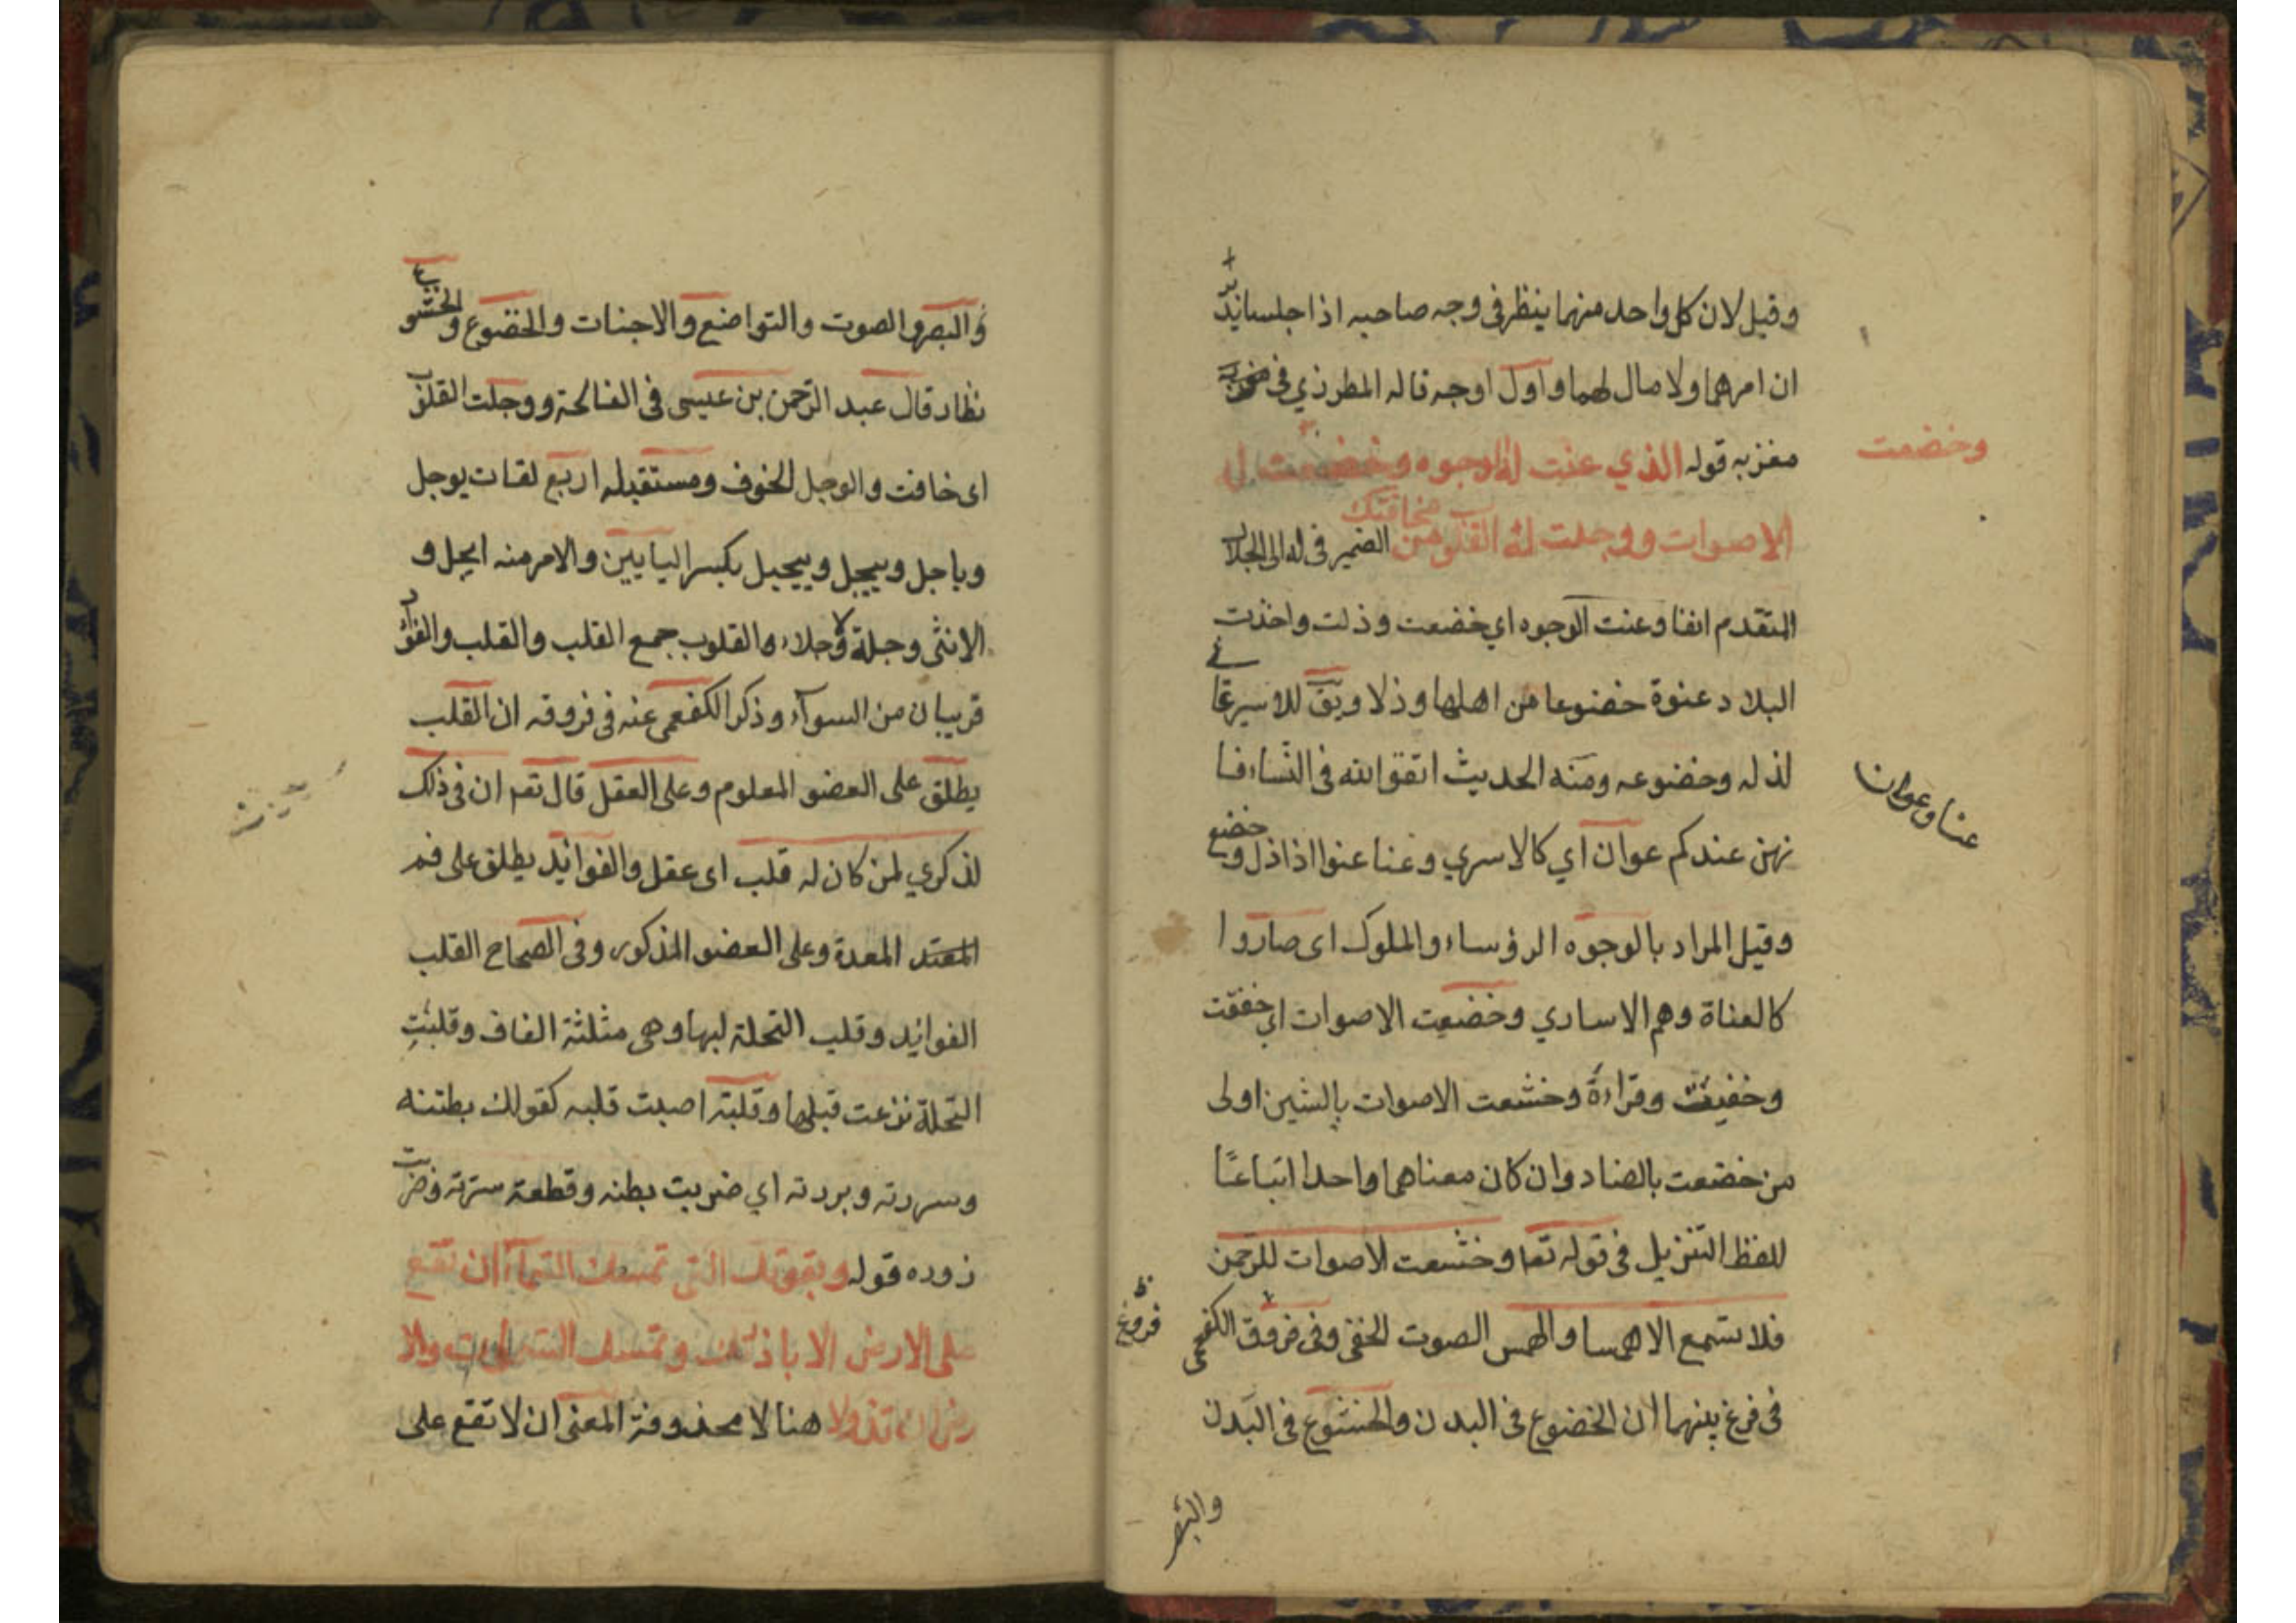 وقيل لان كل واحد منهما ينظر فى وجه صاحبه اذا جلسا يد
ان امرهما ولا مال لهما و اول اوجه قاله المطرزي فى
مغربه قوله الذي عنت له الوجوه وخضعت له
وخضعت
الاصوات ووجلت له القلوب من مخافتك الضمير فى له الى الجلال
المتقدم انفا وعنت الوجوه اي خضعت وذلت واخذت
البلاد عنوة خضوعا من اهلها وذلا ويق للاسير عا
لذله وخضوعه ومنه الحديث اتقوا الله فى النساء فا
عنا وعوان
نهن عندكم عوان اي كالاسري وعنا عنوا اذا ذل وخضع
وقيل المراد بالوجوه الرؤساء والملوك اى صاروا
كالعناة وهم الاساري وخضعت الاصوات اي خفقت
وخفيت وقراءة وخشعت الاصوات بالشين اولى
من خضعت بالضاد وان كان معناهما واحدا اتباعًا
للفظ التنزيل فى قوله تعا وخشعت الاصوات للرحمن
فلا تسمع الا همسا والهمس الصوت الخفى وفى فروق الكفعمى
فروع
فى فرغ بينهما ان الخضوع فى البدن والخشوع فى البدن
والبصر
والبصر والصوت والتواضع والاجنات والخضوع والخشوع
نظار قال عبد الرحمن بن عيسى فى الفالحة ووجلت القلوب
اى خافت والوجل الخوف ومستقبله اربع لغات يوجل
وياجل وييجل وييجل بكسر اليايين والامر منه ايجل و
الانثى وجلة ولا وجلاء والقلوب جمع القلب والقلب والفؤاد
قريبان من السوآء وذكر الكفعمى عنه فى فروقه ان القلب
يطلق على العضو المعلوم وعلى العقل قال تعم ان فى ذلك
لذكري لمن كان له قلب اى عقل والفوائد يطلق على فم
المعتد المعدة وعلى العضو المذكور وفى الصحاح القلب
الفوايد وقلب النخلة لبها وهى مثلثة القاف وقلبت
النخلة نزعت قبلها وقلبته اصبت قلبه كقولك بطنته
وسررته وبردته اي ضربت بطنه وقطعة سرته وضربت
زوره قوله وبقوتك التى تمسك السمآء ان تقع
على الارض الا باذنك وتمسك السموات والا
رض ان تزولا هنا لا محذوفة المعنى ان لا تقع على